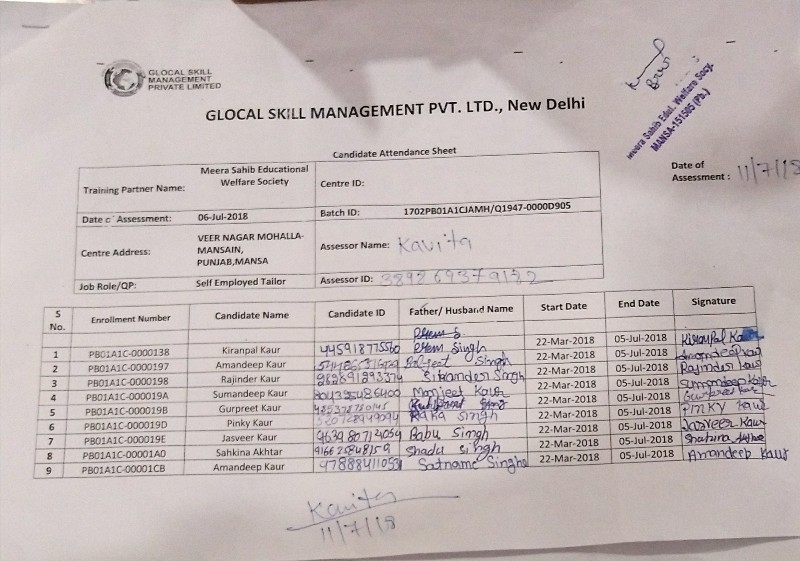 GLOCAL SKILL
MANAGEMENT
PRIVATE LIMITED
GLOCAL SKILL MANAGEMENT PVT. LTD., New Delhi
Meera Sahib Edul. Welfare Socy.
MANSA-151505 (Pb.)
Candidate Attendance Sheet
Date of Assessment : 11/7/18
Training Partner Name: Meera Sahib Educational Welfare Society Centre ID:
Date of Assessment: 06-Jul-2018 Batch ID: 1702PB01A1CJAMH/Q1947-0000D905
Centre Address: VEER NAGAR MOHALLA-MANSAIN, PUNJAB,MANSA Assessor Name: Kavita
Job Role/QP: Self Employed Tailor Assessor ID:
S No. Enrollment Number Candidate Name Candidate ID Father/ Husband Name Start Date End Date Signature
1 PB01A1C-0000138 Kiranpal Kaur 445918775560 Prem Singh 22-Mar-2018 05-Jul-2018 Kiranpal Kaur
2 PB01A1C-0000197 Amandeep Kaur Singh 22-Mar-2018 05-Jul-2018 Amandeep Kaur
3 PB01A1C-0000198 Rajinder Kaur Sikander Singh 22-Mar-2018 05-Jul-2018 Rajinder Kaur
4 PB01A1C-000019A Sumandeep Kaur Manjeet Kaur 22-Mar-2018 05-Jul-2018 Sumandeep Kaur
5 PB01A1C-000019B Gurpreet Kaur 22-Mar-2018 05-Jul-2018 Gurpreet Kaur
6 PB01A1C-000019D Pinky Kaur Singh 22-Mar-2018 05-Jul-2018 PINKY Kaur
7 PB01A1C-000019E Jasveer Kaur Babu Singh 22-Mar-2018 05-Jul-2018 Jasveer Kaur
8 PB01A1C-00001A0 Sahkina Akhtar Shadu Singh 22-Mar-2018 05-Jul-2018
9 PB01A1C-00001CB Amandeep Kaur Satname Singh 22-Mar-2018 05-Jul-2018 Amandeep Kaur
Kavita
11/7/18